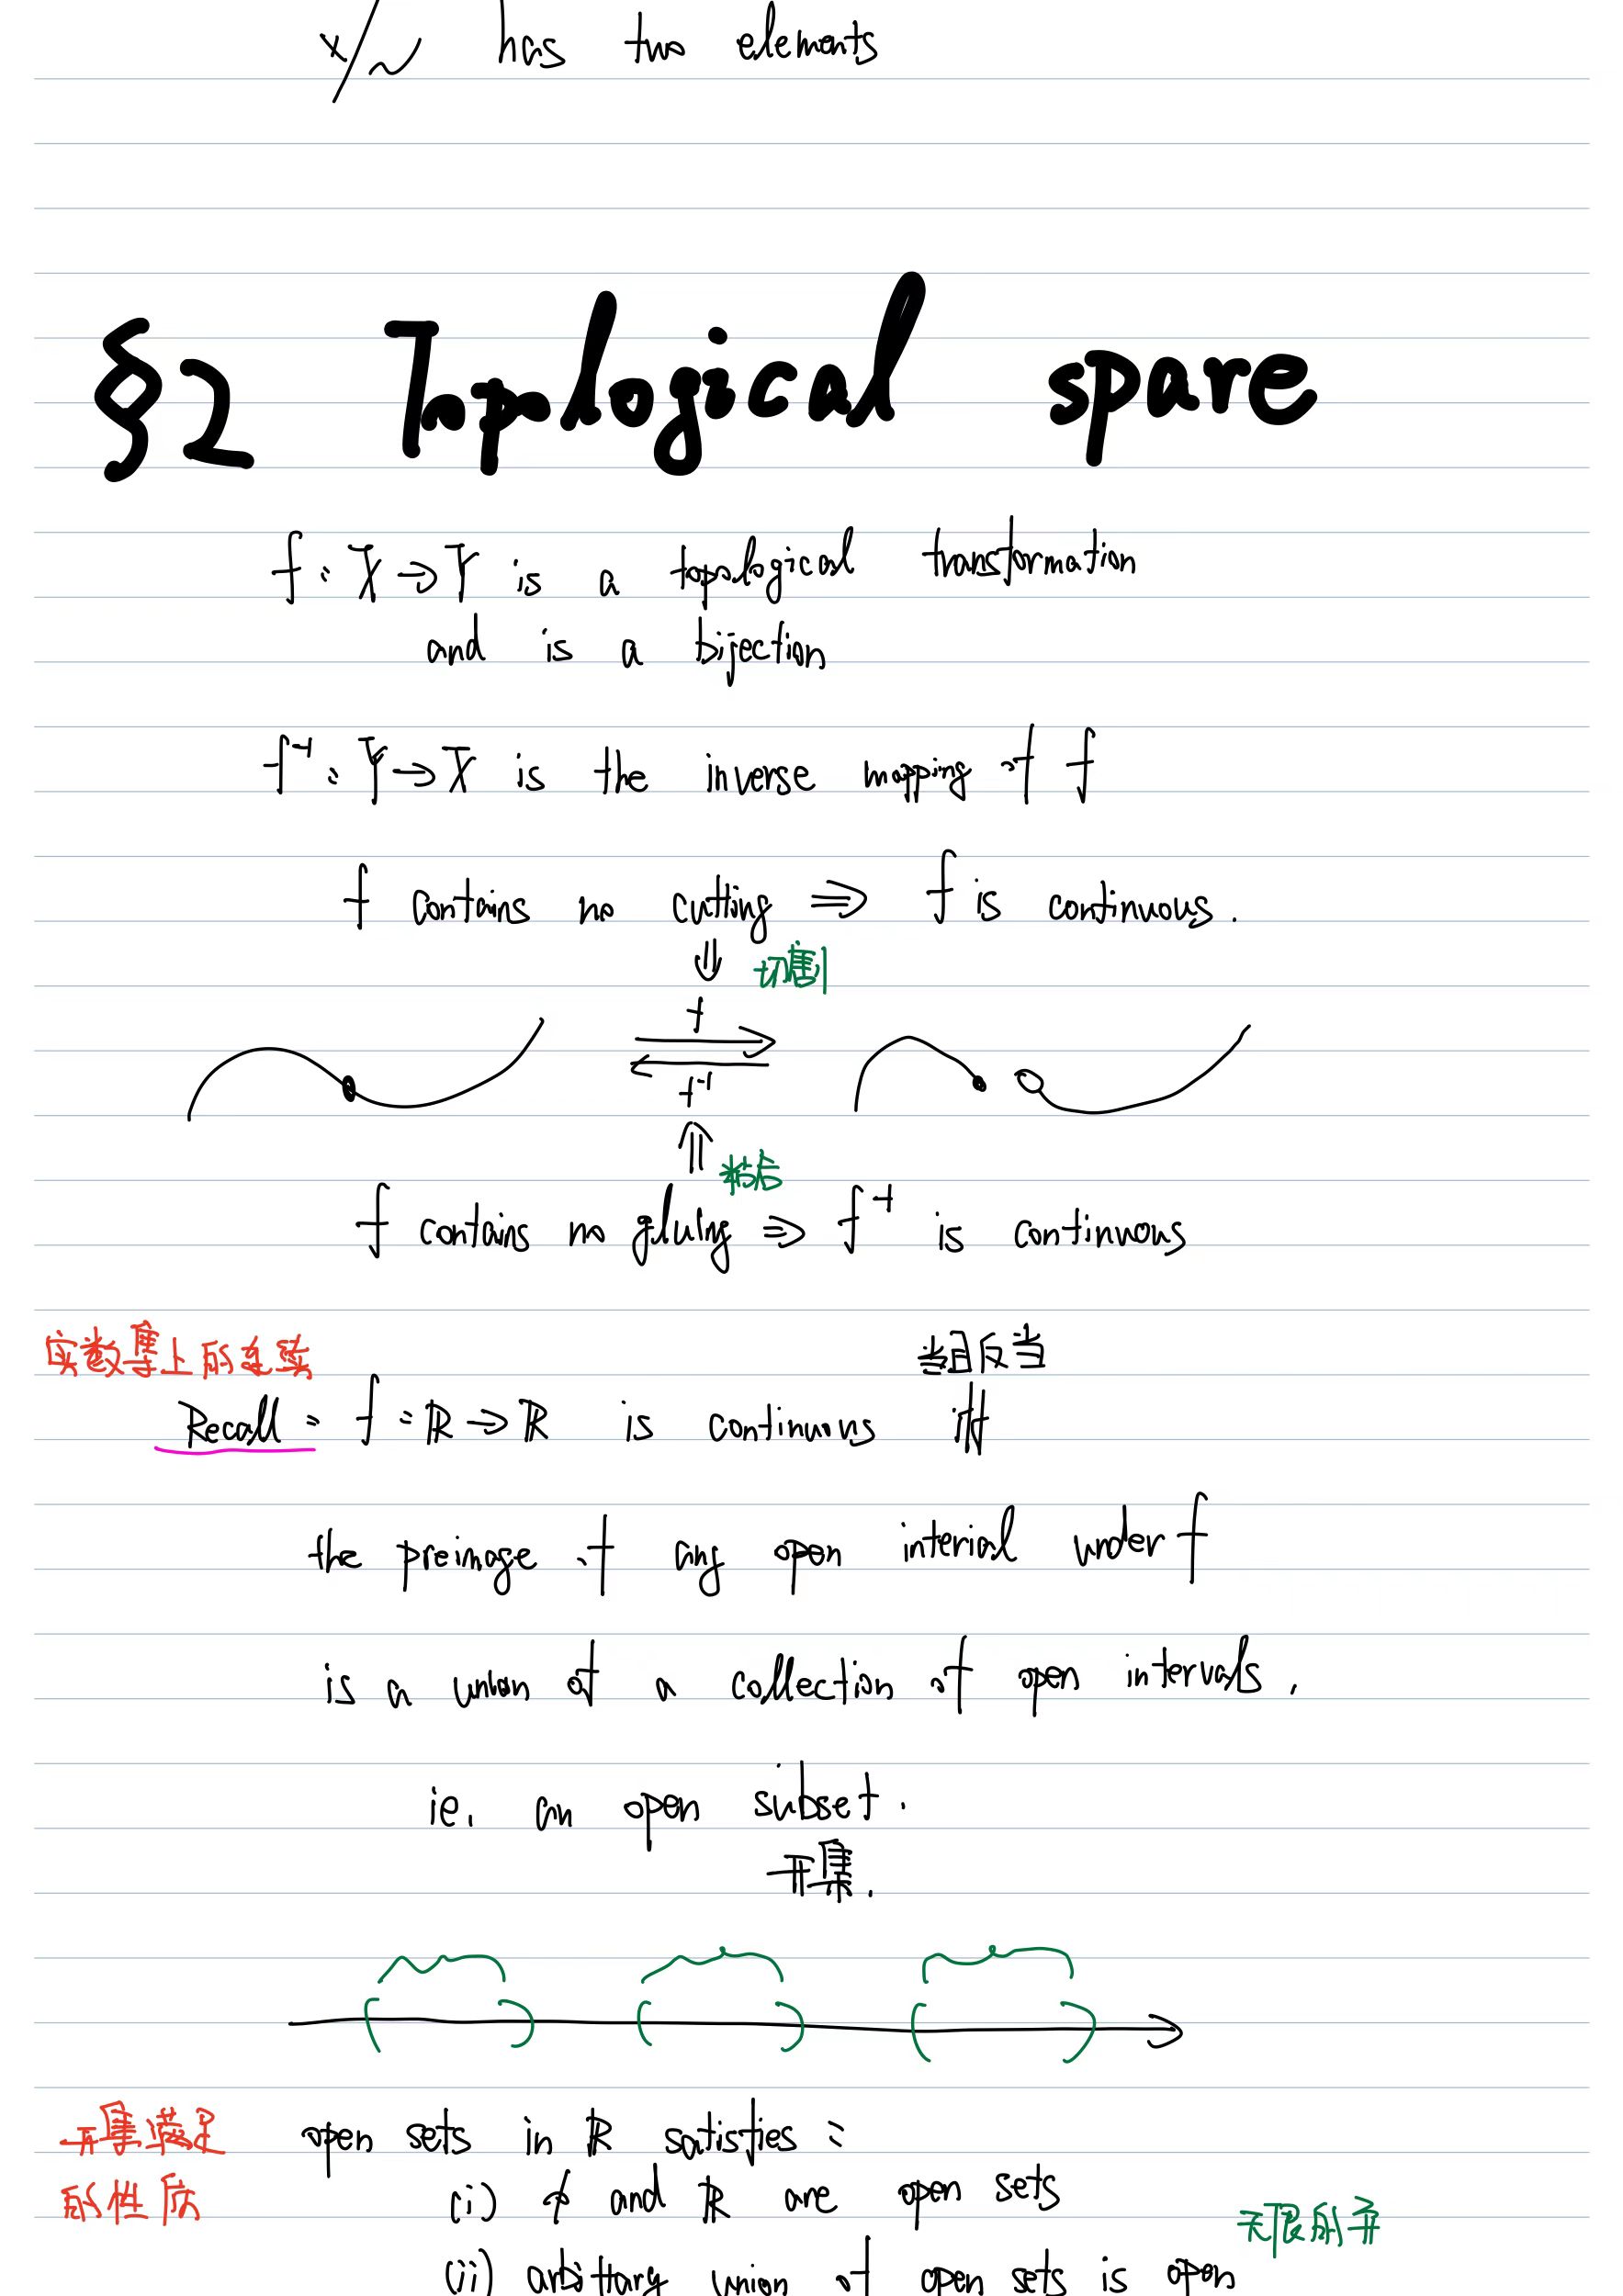 X/~ has two elements
§2 Topological spare
f: X → Y is a topological transformation
and is a bijection
f⁻¹: Y → X is the inverse mapping of f
f contains no cutting ⇒ f is continuous.
⇓ 切割
f
f⁻¹
⇑ 粘后
f contains no gluing ⇒ f⁻¹ is continuous
实数集上的连续
当且仅当
Recall: f: ℝ → ℝ is continuous iff
the preimage of any open interial under f
is a union of a collection of open intervals.
ie. an open subset.
开集.
开集满足
的性质
open sets in ℝ satisfies:
(i) ∅ and ℝ are open sets
无限的并
(ii) arbitrary union of open sets is open